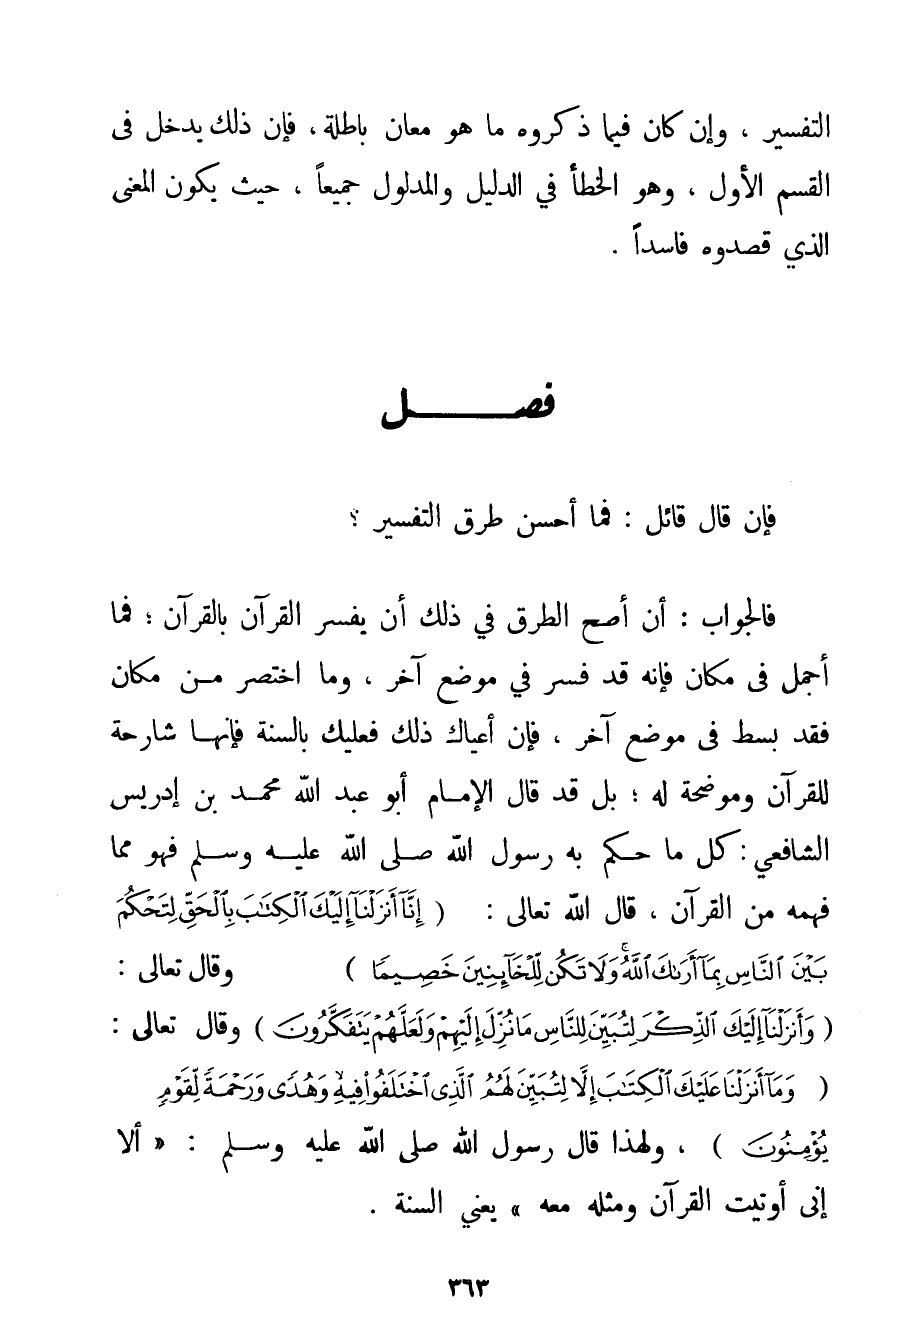 التفسير ، وإن كان فيما ذكروه ما هو معان باطلة ، فإن ذلك يدخل فى
القسم الأول ، وهو الخطأ في الدليل والمدلول جميعاً ، حيث يكون المعنى
الذي قصدوه فاسداً .
فصـــــــل
فإن قال قائل : فما أحسن طرق التفسير ؟
فالجواب : أن أصح الطرق في ذلك أن يفسر القرآن بالقرآن ؛ فما
أجمل فى مكان فإنه قد فسر في موضع آخر ، وما اختصر مـن مكان
فقد بسط فى موضع آخر ، فإن أعياك ذلك فعليك بالسنة فإنهـا شارحة
للقرآن وموضحة له ؛ بل قد قال الإمـام أبو عبد الله محمـد بن إدريس
الشافعي : كل ما حـكم به رسول الله صـلى الله عليـه وسـلم فهو مما
فهمه من القرآن ، قال الله تعالى : ( إِنَّآ أَنزَلْنَآ إِلَيْكَ ٱلْكِتَٰبَ بِٱلْحَقِّ لِتَحْكُمَ
بَيْنَ ٱلنَّاسِ بِمَآ أَرَىٰكَ ٱللَّهُ ۚ وَلَا تَكُن لِّلْخَآئِنِينَ خَصِيمًا ) وقال تعالى :
( وَأَنزَلْنَآ إِلَيْكَ ٱلذِّكْرَ لِتُبَيِّنَ لِلنَّاسِ مَا نُزِّلَ إِلَيْهِمْ وَلَعَلَّهُمْ يَتَفَكَّرُونَ ) وقال تعالى :
( وَمَآ أَنزَلْنَا عَلَيْكَ ٱلْكِتَٰبَ إِلَّا لِتُبَيِّنَ لَهُمُ ٱلَّذِى ٱخْتَلَفُوا۟ فِيهِ ۙ وَهُدًى وَرَحْمَةً لِّقَوْمٍ
يُؤْمِنُونَ ) ، ولهذا قال رسول الله صلى الله عليه وسـلم : « ألا
إنى أوتيت القرآن ومثله معه » يعني السنة .
٣٦٣